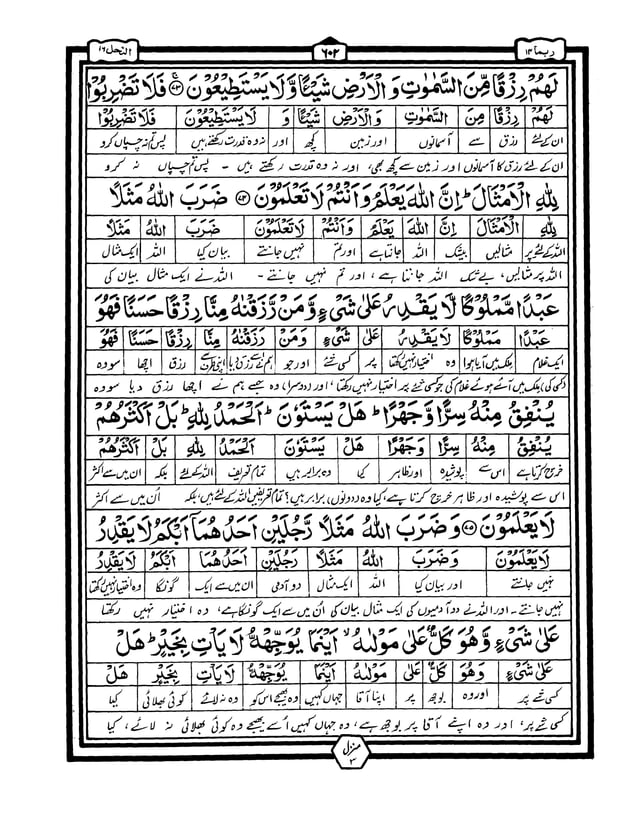 ربما ۱۴
۶۰۲
النحل ۱۶
لَهُمْ رِزْقًا مِّنَ السَّمٰوٰتِ وَالْاَرْضِ شَيْـًٔا وَّلَا يَسْتَطِيْعُوْنَ ۷۳ فَلَا تَضْرِبُوْا
لَهُمْ رِزْقًا مِنَ السَّمٰوٰتِ وَالْاَرْضِ شَيْـًٔا وَ لَا يَسْتَطِيْعُوْنَ فَلَا تَضْرِبُوْا
ان کے لئے رزق سے آسمانوں اور زمین کچھ اور نہ وہ قدرت رکھتے ہیں پس تم نہ چسپاں کرو
ان کے لئے رزق کا آسمانوں اور زمین سے کچھ بھی، اور نہ وہ قدرت رکھتے ہیں - پس تم چسپاں نہ کرو
لِلّٰهِ الْاَمْثَالَ ؕ اِنَّ اللّٰهَ يَعْلَمُ وَاَنْتُمْ لَا تَعْلَمُوْنَ ۷۴ ضَرَبَ اللّٰهُ مَثَلًا
لِلّٰهِ الْاَمْثَالَ اِنَّ اللّٰهَ يَعْلَمُ وَاَنْتُمْ لَا تَعْلَمُوْنَ ضَرَبَ اللّٰهُ مَثَلًا
اللہ کے لئے پر مثالیں بیشک اللہ جانتا ہے اور تم نہیں جانتے بیان کیا اللہ ایک مثال
اللہ پر مثالیں، بے شک اللہ جانتا ہے، اور تم نہیں جانتے - اللہ نے ایک مثال بیان کی
عَبْدًا مَّمْلُوْكًا لَّا يَقْدِرُ عَلٰى شَىْءٍ وَّمَنْ رَّزَقْنٰهُ مِنَّا رِزْقًا حَسَنًا فَهُوَ
عَبْدًا مَمْلُوْكًا لَا يَقْدِرُ عَلٰى شَىْءٍ وَمَنْ رَزَقْنٰهُ مِنَّا رِزْقًا حَسَنًا فَهُوَ
ایک غلام ملک میں آیا ہوا وہ اختیار نہیں رکھتا پر کسی شئے اور جو ہم نے اسے رزق دیا اپنی طرف سے رزق اچھا سو وہ
(کسی کی) ملک میں آئے ہوئے غلام کی جو کسی شئے پر اختیار نہیں رکھتا، اور (دوسرا) وہ جسے ہم نے اچھا رزق دیا سو وہ
يُنْفِقُ مِنْهُ سِرًّا وَّجَهْرًا ؕ هَلْ يَسْتَوٗنَ ؕ اَلْحَمْدُ لِلّٰهِ ؕ بَلْ اَكْثَرُهُمْ
يُنْفِقُ مِنْهُ سِرًّا وَّجَهْرًا هَلْ يَسْتَوٗنَ اَلْحَمْدُ لِلّٰهِ بَلْ اَكْثَرُهُمْ
خرچ کرتا ہے اس سے پوشیدہ اور ظاہر کیا وہ برابر ہیں تمام تعریف اللہ کے لئے بلکہ ان میں سے اکثر
اس سے پوشیدہ اور ظاہر خرچ کرتا ہے، کیا وہ (دونوں) برابر ہیں؟ تمام تعریفیں اللہ کے لئے ہیں، بلکہ اُن میں سے اکثر
لَا يَعْلَمُوْنَ ۷۵ وَضَرَبَ اللّٰهُ مَثَلًا رَّجُلَيْنِ اَحَدُهُمَآ اَبْكَمُ لَا يَقْدِرُ
لَا يَعْلَمُوْنَ وَضَرَبَ اللّٰهُ مَثَلًا رَجُلَيْنِ اَحَدُهُمَا اَبْكَمُ لَا يَقْدِرُ
نہیں جانتے اور بیان کیا اللہ ایک مثال دو آدمی ان میں سے ایک گونگا وہ اختیار نہیں رکھتا
نہیں جانتے - اور اللہ نے دو آدمیوں کی ایک مثال بیان کی اُن میں سے ایک گونگا ہے، وہ اختیار نہیں رکھتا
عَلٰى شَىْءٍ وَّهُوَ كَلٌّ عَلٰى مَوْلٰىهُ ۙ اَيْنَمَا يُوَجِّهْهُّ لَا يَاْتِ بِخَيْرٍ ؕ هَلْ
عَلٰى شَىْءٍ وَهُوَ كَلٌّ عَلٰى مَوْلٰىهُ اَيْنَمَا يُوَجِّهْهُ لَا يَاْتِ بِخَيْرٍ هَلْ
کسی شے پر اور وہ بوجھ پر اپنا آقا جہاں کہیں وہ بھیجے اس کو وہ نہ لائے کوئی بھلائی کیا
کسی شے پر، اور وہ اپنے آقا پر بوجھ ہے، وہ جہاں کہیں اُسے بھیجے وہ کوئی بھلائی نہ لائے، کیا
منزل ۳